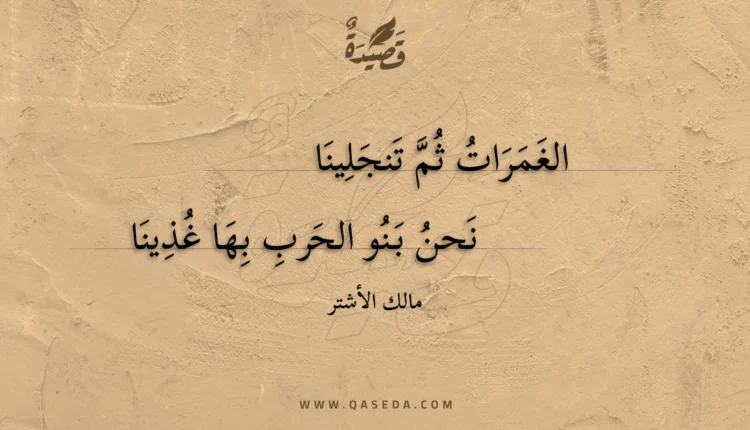 قَصِيدَةٌ
الغَمَرَاتُ ثُمَّ تَنجَلِينَا
نَحنُ بَنُو الحَربِ بِهَا غُذِينَا
مالك الأشتر
WWW.QASEDA.COM